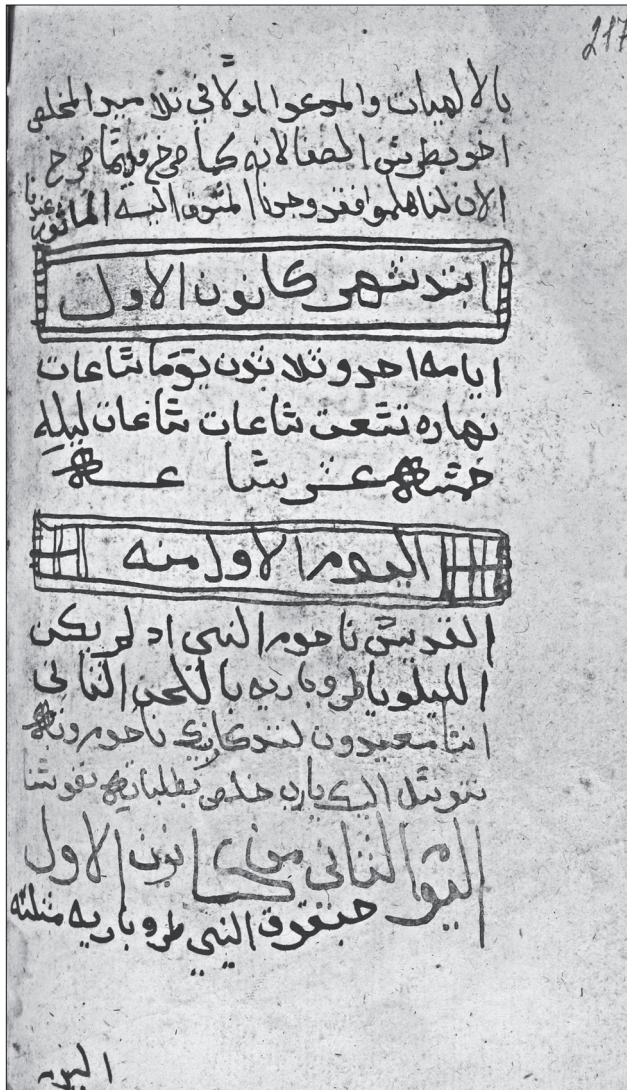 217
بالالهيات والمدعوا اولا في تلاميد المخلص
اخو بطرس الصفا لانه كما صرخ قديما صرخ
الان لنا هلموا فقد وجدنا المشوق اليه الماثور
عندنا
ابتد شهر كانون الاول
ايامه احد وتلاتون يوما ساعات
نهاره تسعت ساعات ساعات ليله
خمسه عشر ساعه
اليوم الاول منه
القديس ناحوم النبي اد لم يكن
الليلويا طروباريه باللحن التاني
اننا معيدون لتدكار نبيك ناحوم وبه
نتوسل اليك يارب خلص بطلباته نفوسنا
اليوم التاني من كانون الاول
حبقوق النبي طروباريه متلته
اليوم